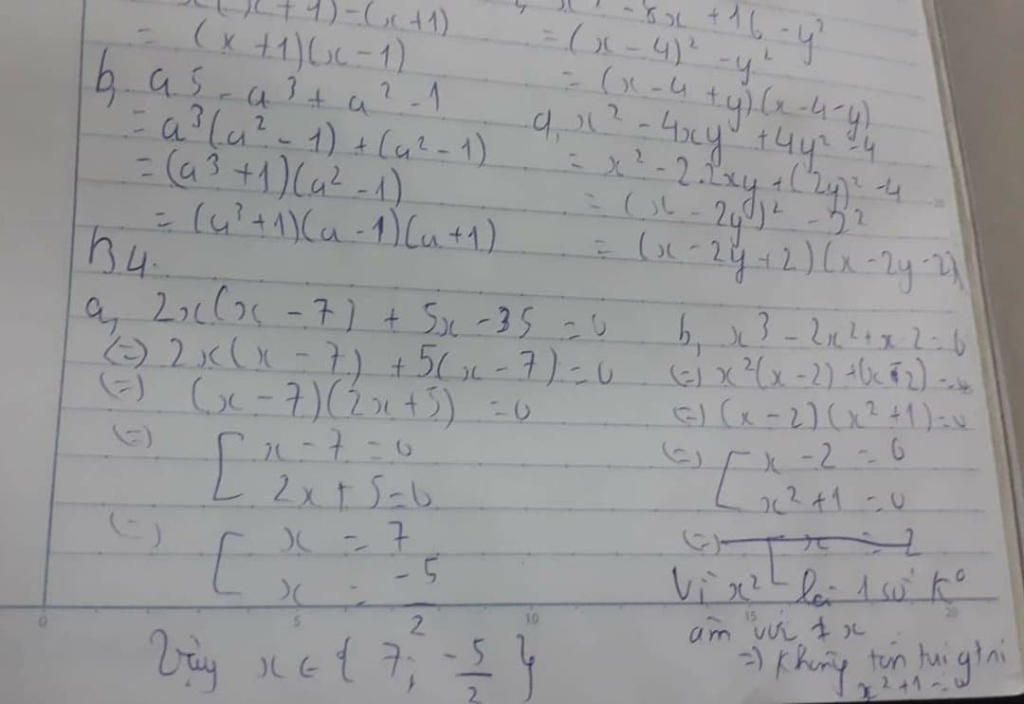 (x+1)-(x+1)
= (x+1)(x-1)
b, a5 - a³ + a² - 1
= a³(a² - 1) + (a² - 1)
= (a³ + 1)(a² - 1)
= (a³+1)(a-1)(a+1)
- 8x + 16 - y²
= (x - 4)² - y²
= (x - 4 + y)(x - 4 - y)
d, x² - 4xy + 4y² - 4
= x² - 2.2xy + (2y)² - 4
= (x - 2y)² - 2²
= (x - 2y + 2)(x - 2y - 2)
B4.
a, 2x(x - 7) + 5x - 35 = 0
(=) 2x(x - 7) + 5(x - 7) = 0
(=) (x - 7)(2x + 5) = 0
(=) [ x - 7 = 0
2x + 5 = 0
(=) [ x = 7
x = -5/2
Vậy x ∈ { 7; -5/2 }
b, x3 - 2x² + x - 2 = 0
(=) x²(x - 2) + (x - 2) = 0
(=) (x - 2)(x² + 1) = 0
(=) [ x - 2 = 0
x² + 1 = 0
(=) [ x = 2
Vì x² là 1 số k°
âm với ∀ x
=) Không tồn tại gtri
x² + 1 = 0
0 5 10 15 20